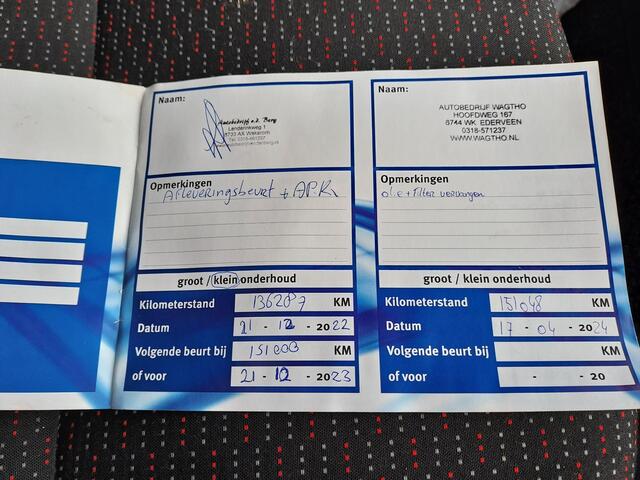 Naam:
Autobedrijf v.d. Berg
Lenderinkweg 1
6733 AX Wekerom
Opmerkingen
Afleveringsbeurt + APK
groot / klein onderhoud
Kilometerstand 136287 KM
Datum 21 - 12 - 2022
Volgende beurt bij 151000 KM
of voor 21 - 12 - 2023
Naam:
AUTOBEDRIJF WAGTHO
HOOFDWEG 167
6744 WK EDERVEEN
0318-571237
WWW.WAGTHO.NL
Opmerkingen
olie + filter vervangen
groot / klein onderhoud
Kilometerstand 151048 KM
Datum 17 - 04 - 2024
Volgende beurt bij KM
of voor - - 20